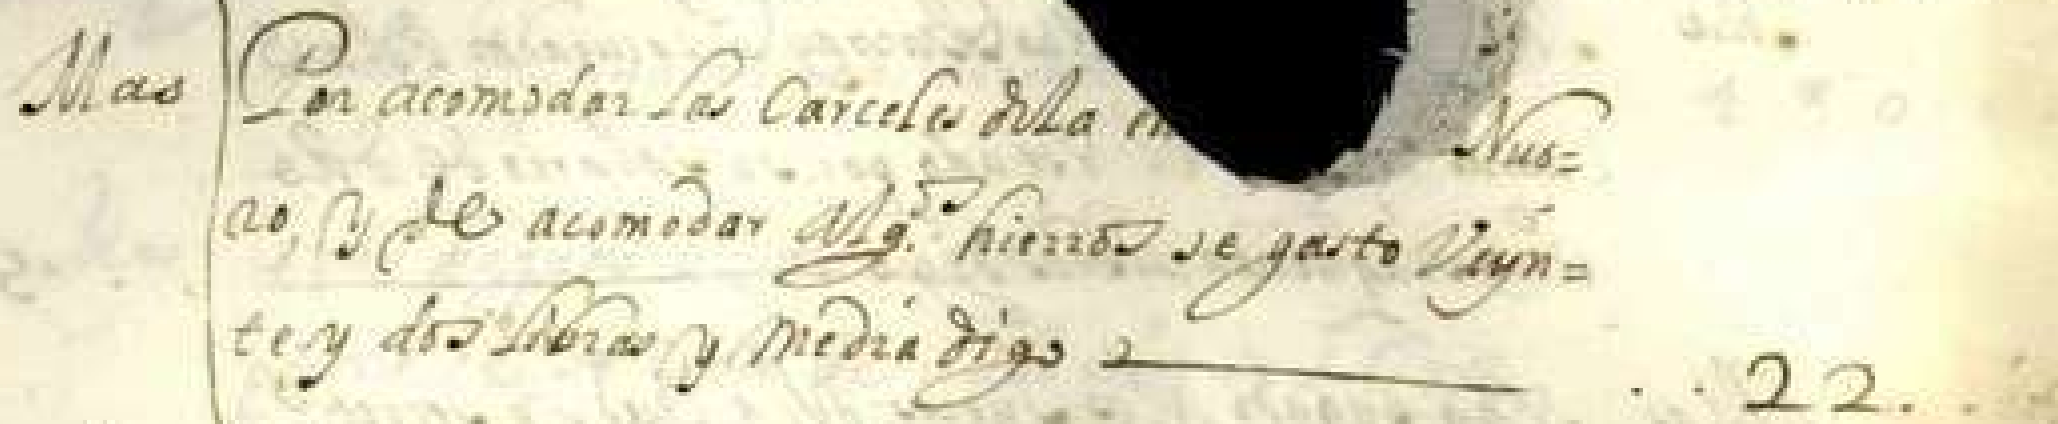 Mas Por acomodar las Carceles della en Nue=
ro, y de acomodar Alg.os hierros se gasto Veyn=
te y dos libras y media digo 22.